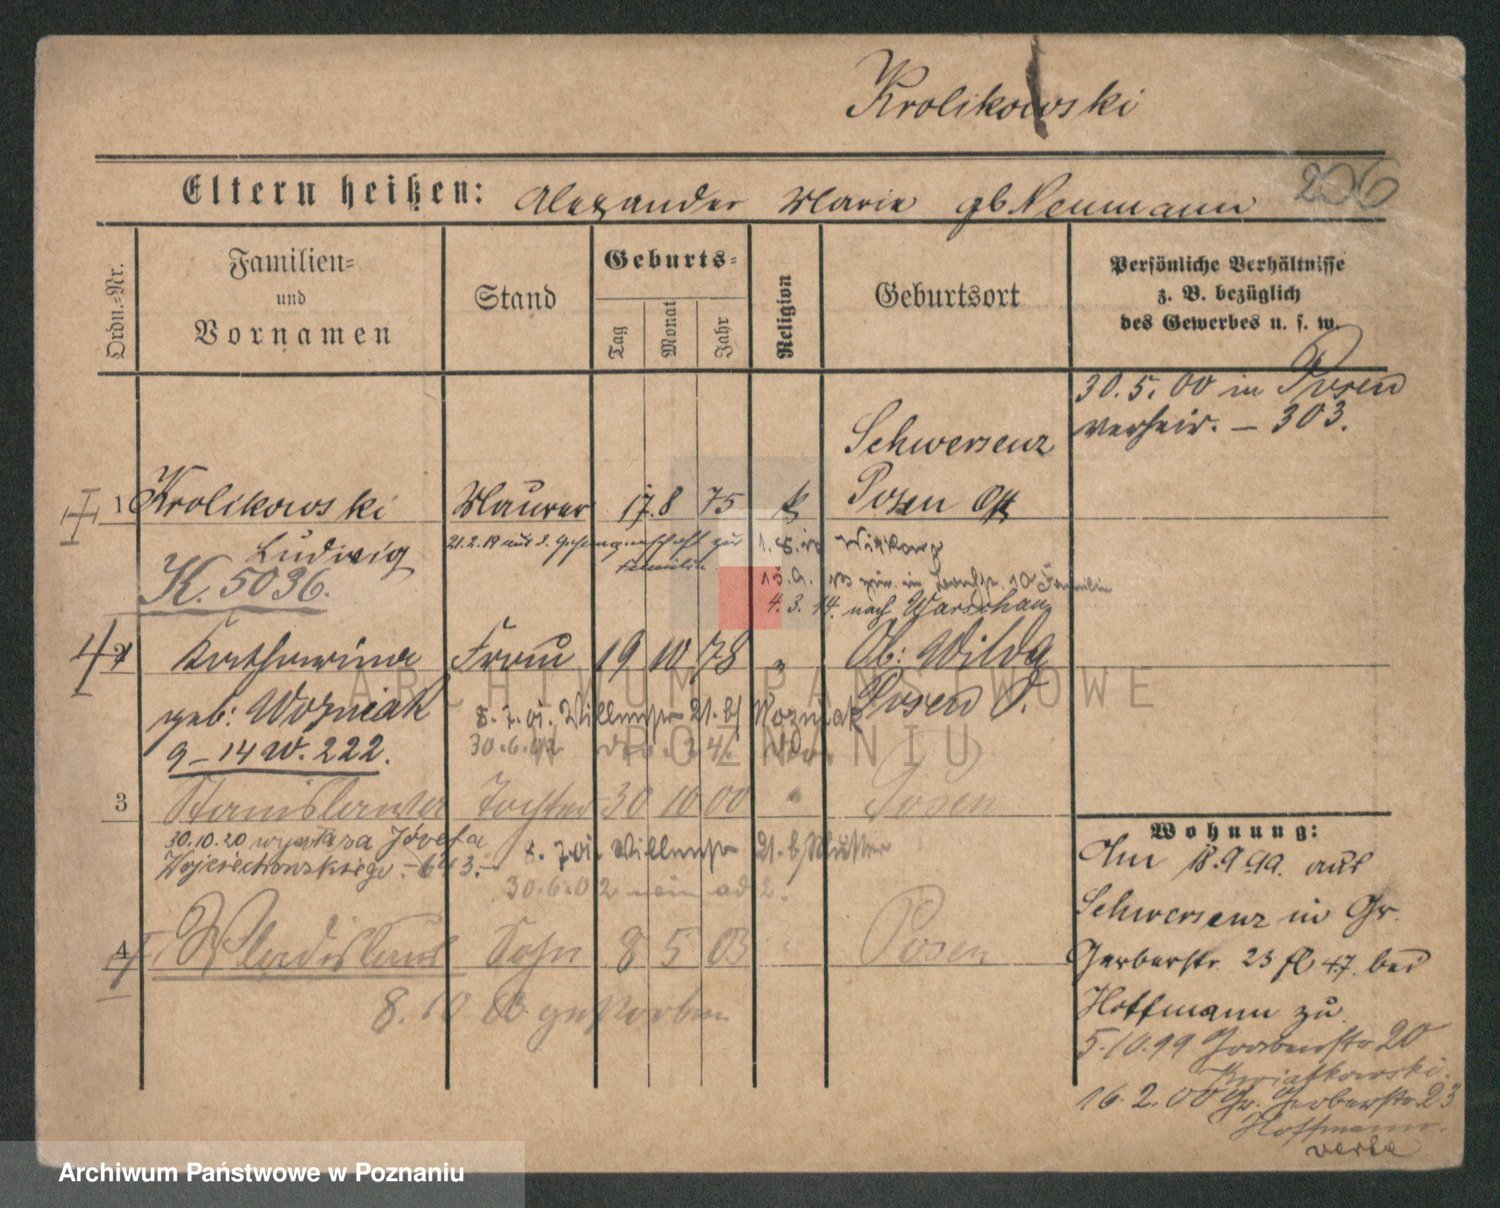 Krolikowski
206
Eltern heißen: Alexander Marie gb Neumann
Ordn.-Nr.
Familien-
und
Vornamen
Stand
Geburts-
Tag
Monat
Jahr
Religion
Geburtsort
Persönliche Verhältnisse
z. B. bezüglich
des Gewerbes u. s. w.
30.5.00 in Posen
verheir. – 303.
Schwersenz
1 Krolikowski Maurer 17. 8 75 k Posen Ost
Ludwig
21.2.19 aus d. Gefangenschaft zur
Familie
K. 5036.
4. 3. 14. nach Warschau
2 Katharina Frau 19 10 78 " Ob: Wilda
geb: Wozniak Posen O.
8. 7. 01. 21. b/ Wozniak
9 – 14 W. 222.
30.6.02
3 Stanislawa Tochter 30 10 00 " Posen
30.10.20 wyszła za Józefa
Wojciechowskiego – 643. –
8. 7. 01. 21. b/ Mutter
30.6.02 ad 2.
4 Wladislaus Sohn 8 5 03 Posen
8. 10 03 gestorben
Wohnung:
Am 18.9.99. aus
Schwersenz in Gr.
Gerberstr. 23 bei
Hoffmann zu
5.10.99 20
Kwiatkowski.
16.2.00 Gr. Gerberstr. 23
Hoffmann.
ARCHIWUM PAŃSTWOWE
W POZNANIU
Archiwum Państwowe w Poznaniu